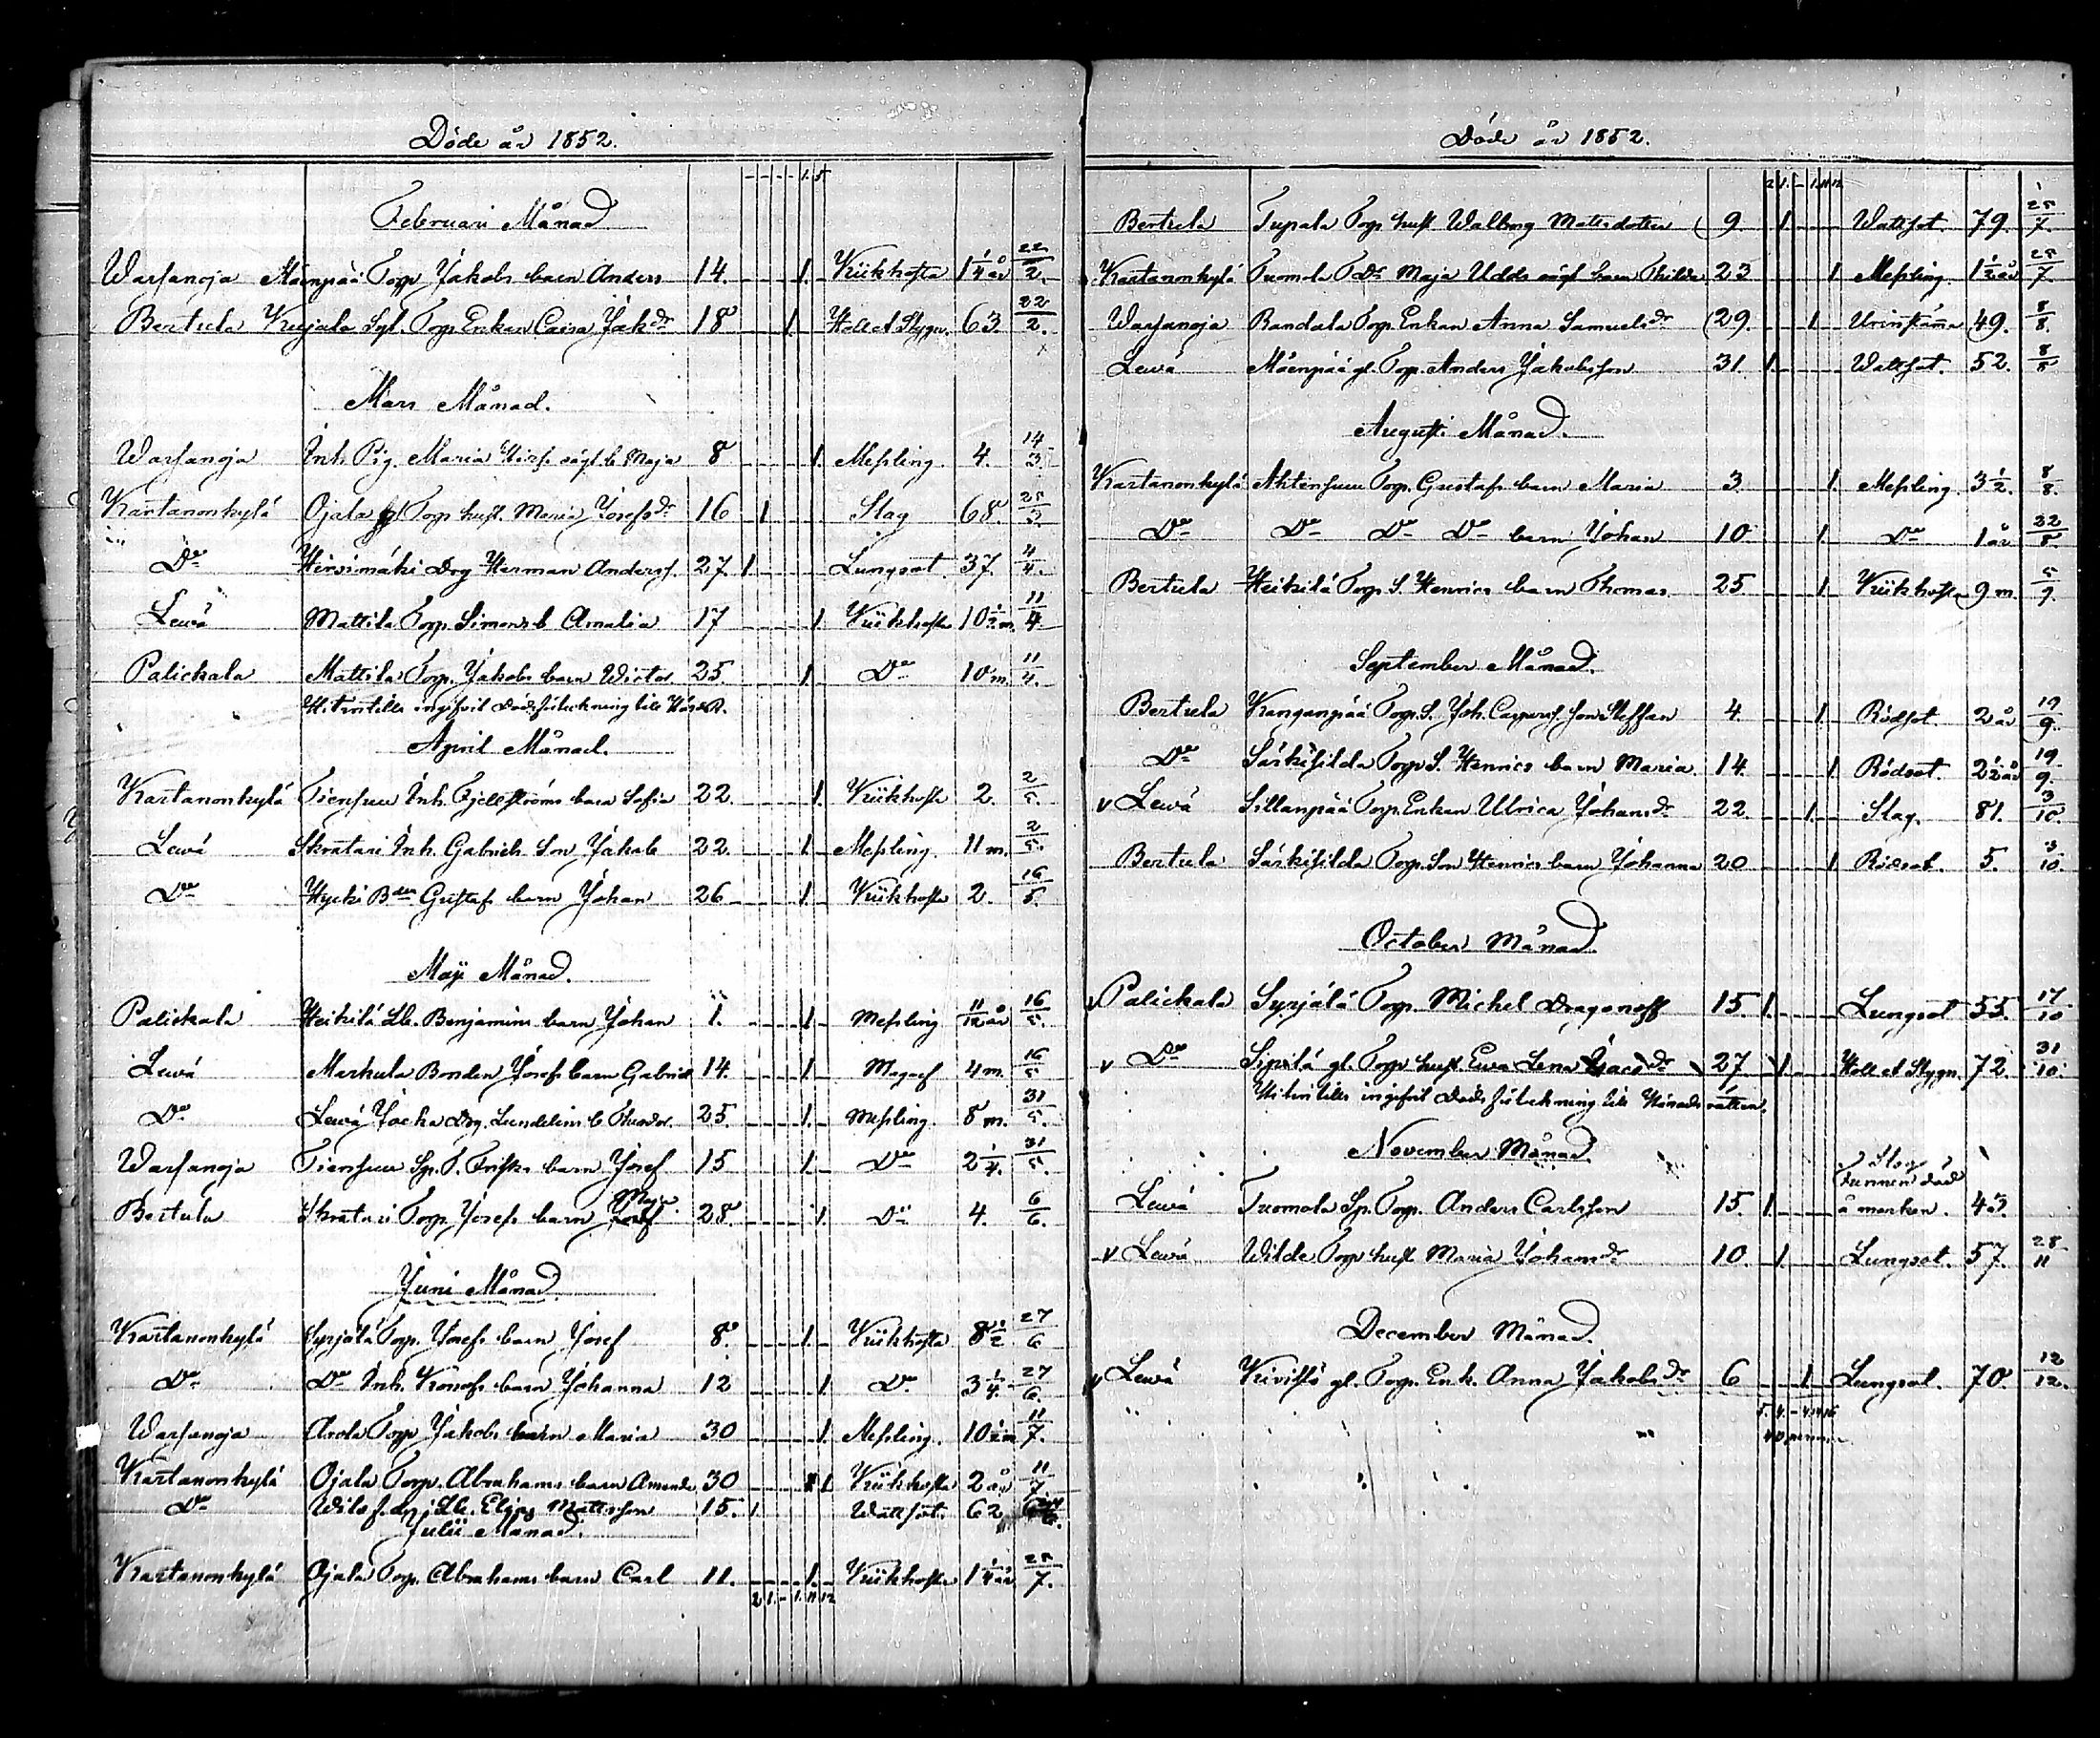 Döde år 1852.
- - - - 1. 5
Februari Månad
Warsanoja Mäenpää Torp Jakobs barn Anders 14. 1. Kikhosta 1 1/4 år 22/2.
Bertula Kujala Sgl. Torp. Enkan Caisa Jak.dr 18 1 Håll et Stygn. 63. 22/2.
Mars Månad.
Warsanoja Inh. Pig. Maria oägt. b. Maja 8 1. Messling. 4. 14/3
Kartanonkylä Ojala gl. Torp. hust. Maria Josefsdr 16 1 Slag 68. 25/3.
Do Hirsimäki Drg Herman Anders. 27. 1 Lungsot. 37. 4/4.
Lewä Mattila Torp. Simons b. Amalia 17 1. Kikhosta 10 1/2 m. 11/4
Palickala Mattila Torp. Jakobs barn Wictor 25. 1. Do 10 m. 11/4.
Hitintills ingifvit Dödsförteckning till
April Månad.
Kartanonkylä Tiensuu Inh. Fjellströms barn Sofia 22. 1. Kikhosta 2. 2/5.
Lewä Skratari Inh. Gabriels Son Jakob 22. 1. Messling. 11 m. 2/5.
Do Hycki Bden Gustafs barn Johan 26 1. Kikhosta 2. 16/5.
Maji Månad.
Palickala Heikilä Lb. Benjamins barn Johan 1. 1. Messling 11/12 år 16/5.
Lewä Markula Bonden Josefs barn Gabriel 14. 1. Magref 4 m. 16/5
Do Lewä Jocka Drg. Lundelins b. Theodor. 25. 1. Messling. 8 m. 31/5.
Warsanoja Tiensuu Sp. T. Frisks barn Josef 15 1. Do 2 1/4. 31/5.
Bertula Skratari Torp. Josefs barn Maja 28. 1. Do 4. 6/6.
Juni Månad
Kartanonkylä Syrjälä Torp. Josefs barn Josef 8. 1. Kikhosta 8 1/2 27/6
Do Do Inh. barn Johanna 12 1. Do 3 1/4 27/6.
Warsanoja Torp Jakobs barn Maria 30 1. Messling. 10 1/2 m 11/7.
Kartanonkylä Ojala Torp. Abrahams barn Amanda 30 1 Kikhosta 2 år 11/7
Do Lb. Elias Mattsson 15. 1. Wattsot. 62
Julii Månad.
Kartanonkylä Ojala Torp. Abrahams barn Carl 11. 1. Kikhosta 1 1/4 år 25/7.
2 1. - 1. 11 12
Döde år 1852.
2 1. - 1. 11 12.
Bertula Tupala Torp. hust Walborg Mattsdotter 9. 1. Wattsot. 79. 25/7.
Kartanonkylä Tuomola Tdr. Maja Udds oägt barn Thilda 23 1. Messling. 1 1/2 år 25/7.
Warsanoja Randala Torp. Enkan Anna Samuelsdr 29. 1 Urinstämma 49. 8/8.
Lewä Mäenpää gl. Torp. Anders Jakobsson 31. 1. Wattsot. 52. 8/8
Augusti Månad.
Kartanonkylä Ahtensuu Torp. Gustafs barn Maria 3. 1. Messling. 3 1/2. 8/8.
Do Do Do Do barn Johan 10. 1. Do 1 år 22/8.
Bertula Heikilä Torp. S. Henrics barn Thomas 25 1. Kikhosta 9 m. 5/9.
September Månad.
Bertula Kanganpää Torp. S. Joh. Caspers. son Steffan 4. 1. Rödsot. 2 år 19/9.
Do Särkisilda Torp. S. Henrics barn Maria. 14. 1. Rödsot. 2 1/2 år 19/9.
v Lewä Sillanpää Torp. Enkan Ulrica Johansdr 22. 1. Slag. 81. 3/10.
Bertula Särkisilda Torp. Son Henrics barn Johanna 20 1 Rödsot. 5. 3/10.
October Månad.
v Palickala Syrjälä Torp. Michel Draganoff 15. 1. Lungsot 55. 17/10
v Do Sipilä gl. Torp hust Ewa Lena Isacsdr 27. 1. Håll et Stygn. 72. 31/10.
Hitintills ingifvit Dödsförteckning till Häradsrätten.
November Månad.
Slag
funnen död
Lewä Tuomola Sp. Torp. Anders Carlsson 15. 1. å marken. 43.
v Lewä Wilde Torp hust Maria Johansdr 10. 1. Lungsot. 57. 28/11
December Månad.
v Lewä Torp. Enk. Anna Jakobsdr 6 1 Lungsot. 70. 12/12.
5. 4. - 4. 14 16